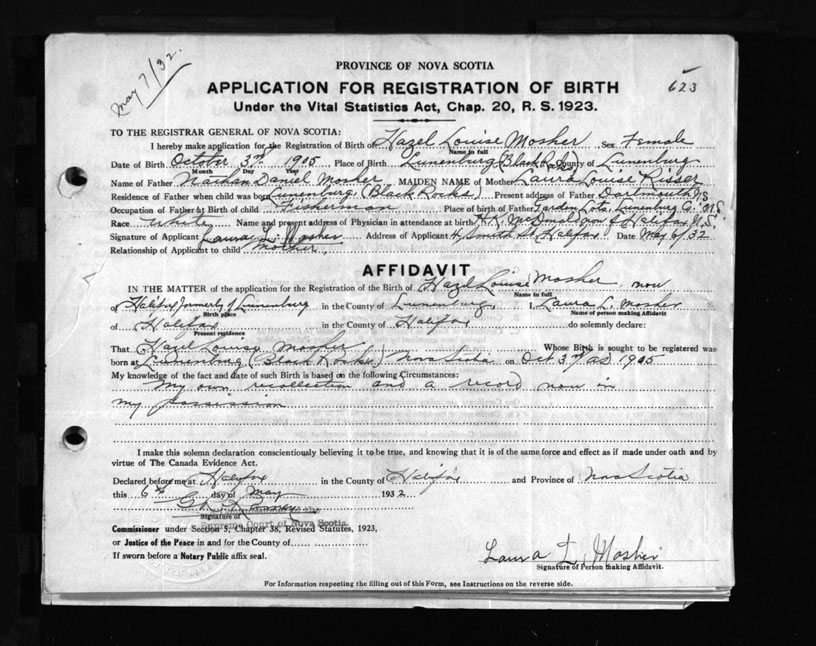 May 7/32.
PROVINCE OF NOVA SCOTIA
623
APPLICATION FOR REGISTRATION OF BIRTH
Under the Vital Statistics Act, Chap. 20, R. S. 1923.
TO THE REGISTRAR GENERAL OF NOVA SCOTIA:
I hereby make application for the Registration of Birth of Hazel Louise Mosher Sex Female
Name in full
Date of Birth October 3rd 1905 Place of Birth Lunenburg (Black Rocks) County of Lunenburg
Month Day Year
Name of Father Nathan Daniel Mosher MAIDEN NAME of Mother Laura Louise Risser
Residence of Father when child was born Lunenburg (Black Rocks) Present address of Father Dartmouth N.S
Occupation of Father at Birth of child Fisherman Place of birth of Father Lunenburg Co. N.S
Race White Name and present address of Physician in attendance at birth H.K. McDonald Halifax N.S.
Signature of Applicant Laura L. Mosher Address of Applicant Smith St. Halifax Date May 6/32
Relationship of Applicant to child Mother
AFFIDAVIT
IN THE MATTER of the application for the Registration of the Birth of Hazel Louise Mosher, now
Name in full
of Halifax formerly of Lunenburg in the County of Lunenburg, I, Laura L. Mosher
Birth place Name of person making Affidavit
of Halifax in the County of Halifax do solemnly declare:
Present residence
That Hazel Louise Mosher Whose Birth is sought to be registered was
born at Lunenburg (Black Rocks) Nova Scotia on Oct 3rd AD 1905
My knowledge of the fact and date of such Birth is based on the following Circumstances:
My own recollection and a record now in
my possission
I make this solemn declaration conscientiously believing it to be true, and knowing that it is of the same force and effect as if made under oath and by
virtue of The Canada Evidence Act.
Declared before me at Halifax in the County of Halifax and Province of Nova Scotia
this 6th day of May 1932
Signature of
Supreme Court of Nova Scotia
Commissioner under Section 5, Chapter 38, Revised Statutes, 1923,
or Justice of the Peace in and for the County of
If sworn before a Notary Public affix seal.
Laura L. Mosher
Signature of Person making Affidavit.
For Information respecting the filling out of this Form, see Instructions on the reverse side.